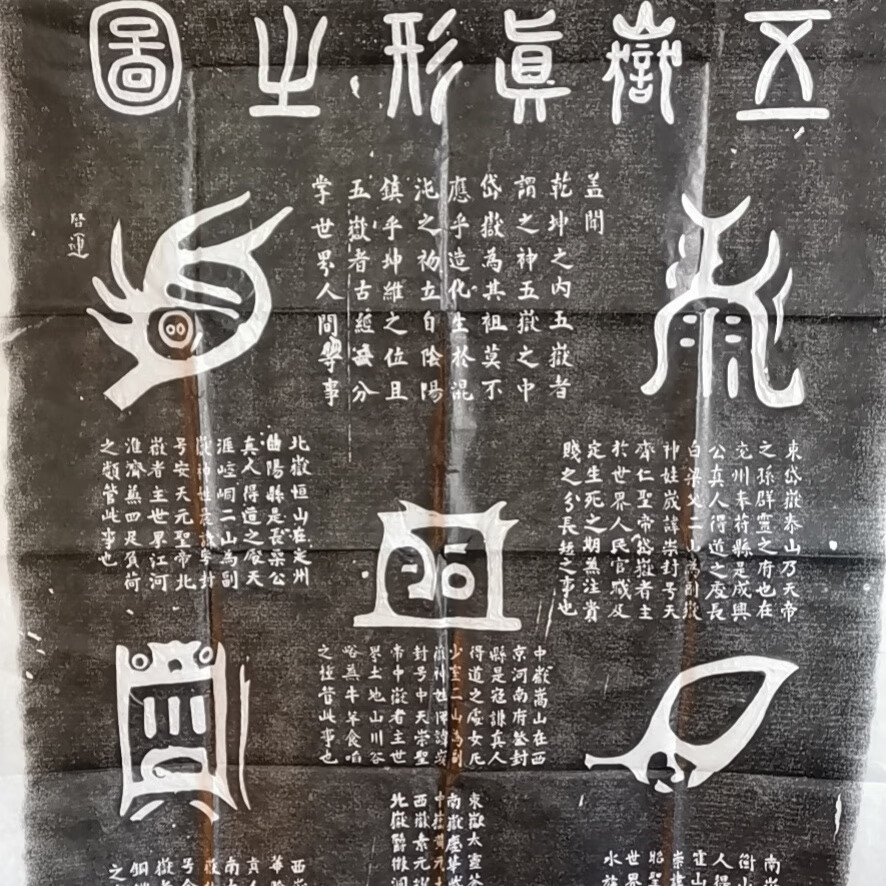 五嶽真形之圖
蓋聞
乾坤之内五嶽者
謂之神五嶽之中
岱嶽為其祖莫不
應乎造化生於混
沌之初立自陰陽
鎮乎坤維之位且
五嶽者古經云分
掌世界人間等事
東岱嶽泰山乃天帝
之孫群靈之府也在
兖州奉符縣是成興
公真人得道之處長
白梁父二山為副嶽
神姓歲諱崇封号天
齊仁聖帝岱嶽者主
於世界人民官職及
定生死之期兼注貴
賤之分長短之事也
北嶽恒山在定州
曲陽縣是長桑公
真人得道之處天
涯崆峒二山為副
嶽神姓晨諱封
号安天元聖帝北
嶽者主世界江河
淮濟兼四足負荷
之類管此事也
中嶽嵩山在西
京河南府登封
縣是寇謙真人
得道之處女几
少室二山為副
嶽神姓惲諱
封号中天崇聖
帝中嶽者主世
界土地山川谷
峪兼牛羊食啗
之種管此事也
東嶽太靈蒼
南嶽慶華紫
中嶽黄元大
西嶽素元
北嶽鬱微洞